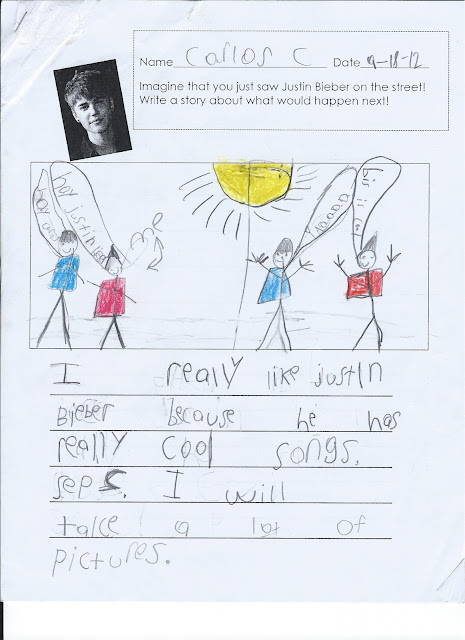 Name Carlos C Date 9-18-12
Imagine that you just saw Justin Bieber on the street!
Write a story about what would happen next!
hoy justin
I really like justin
Bieber because he has
really cool songs.
I will
take a lot of
pictures.